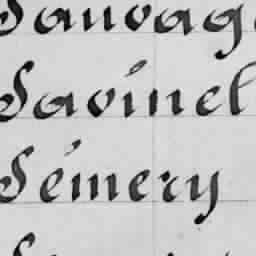 Sauvage
Savinel
Sémery